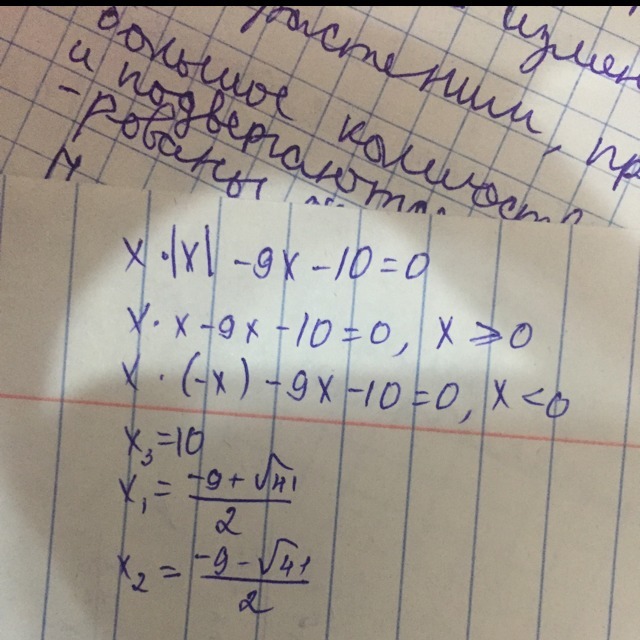 растений измен
большое количеств
и подвергаются
-рованы
x · |x| - 9x - 10 = 0
x · x - 9x - 10 = 0, x ⩾ 0
x · (-x) - 9x - 10 = 0, x < 0
x₃ = 10
x₁ = (-9 + √41)/2
x₂ = (-9 - √41)/2